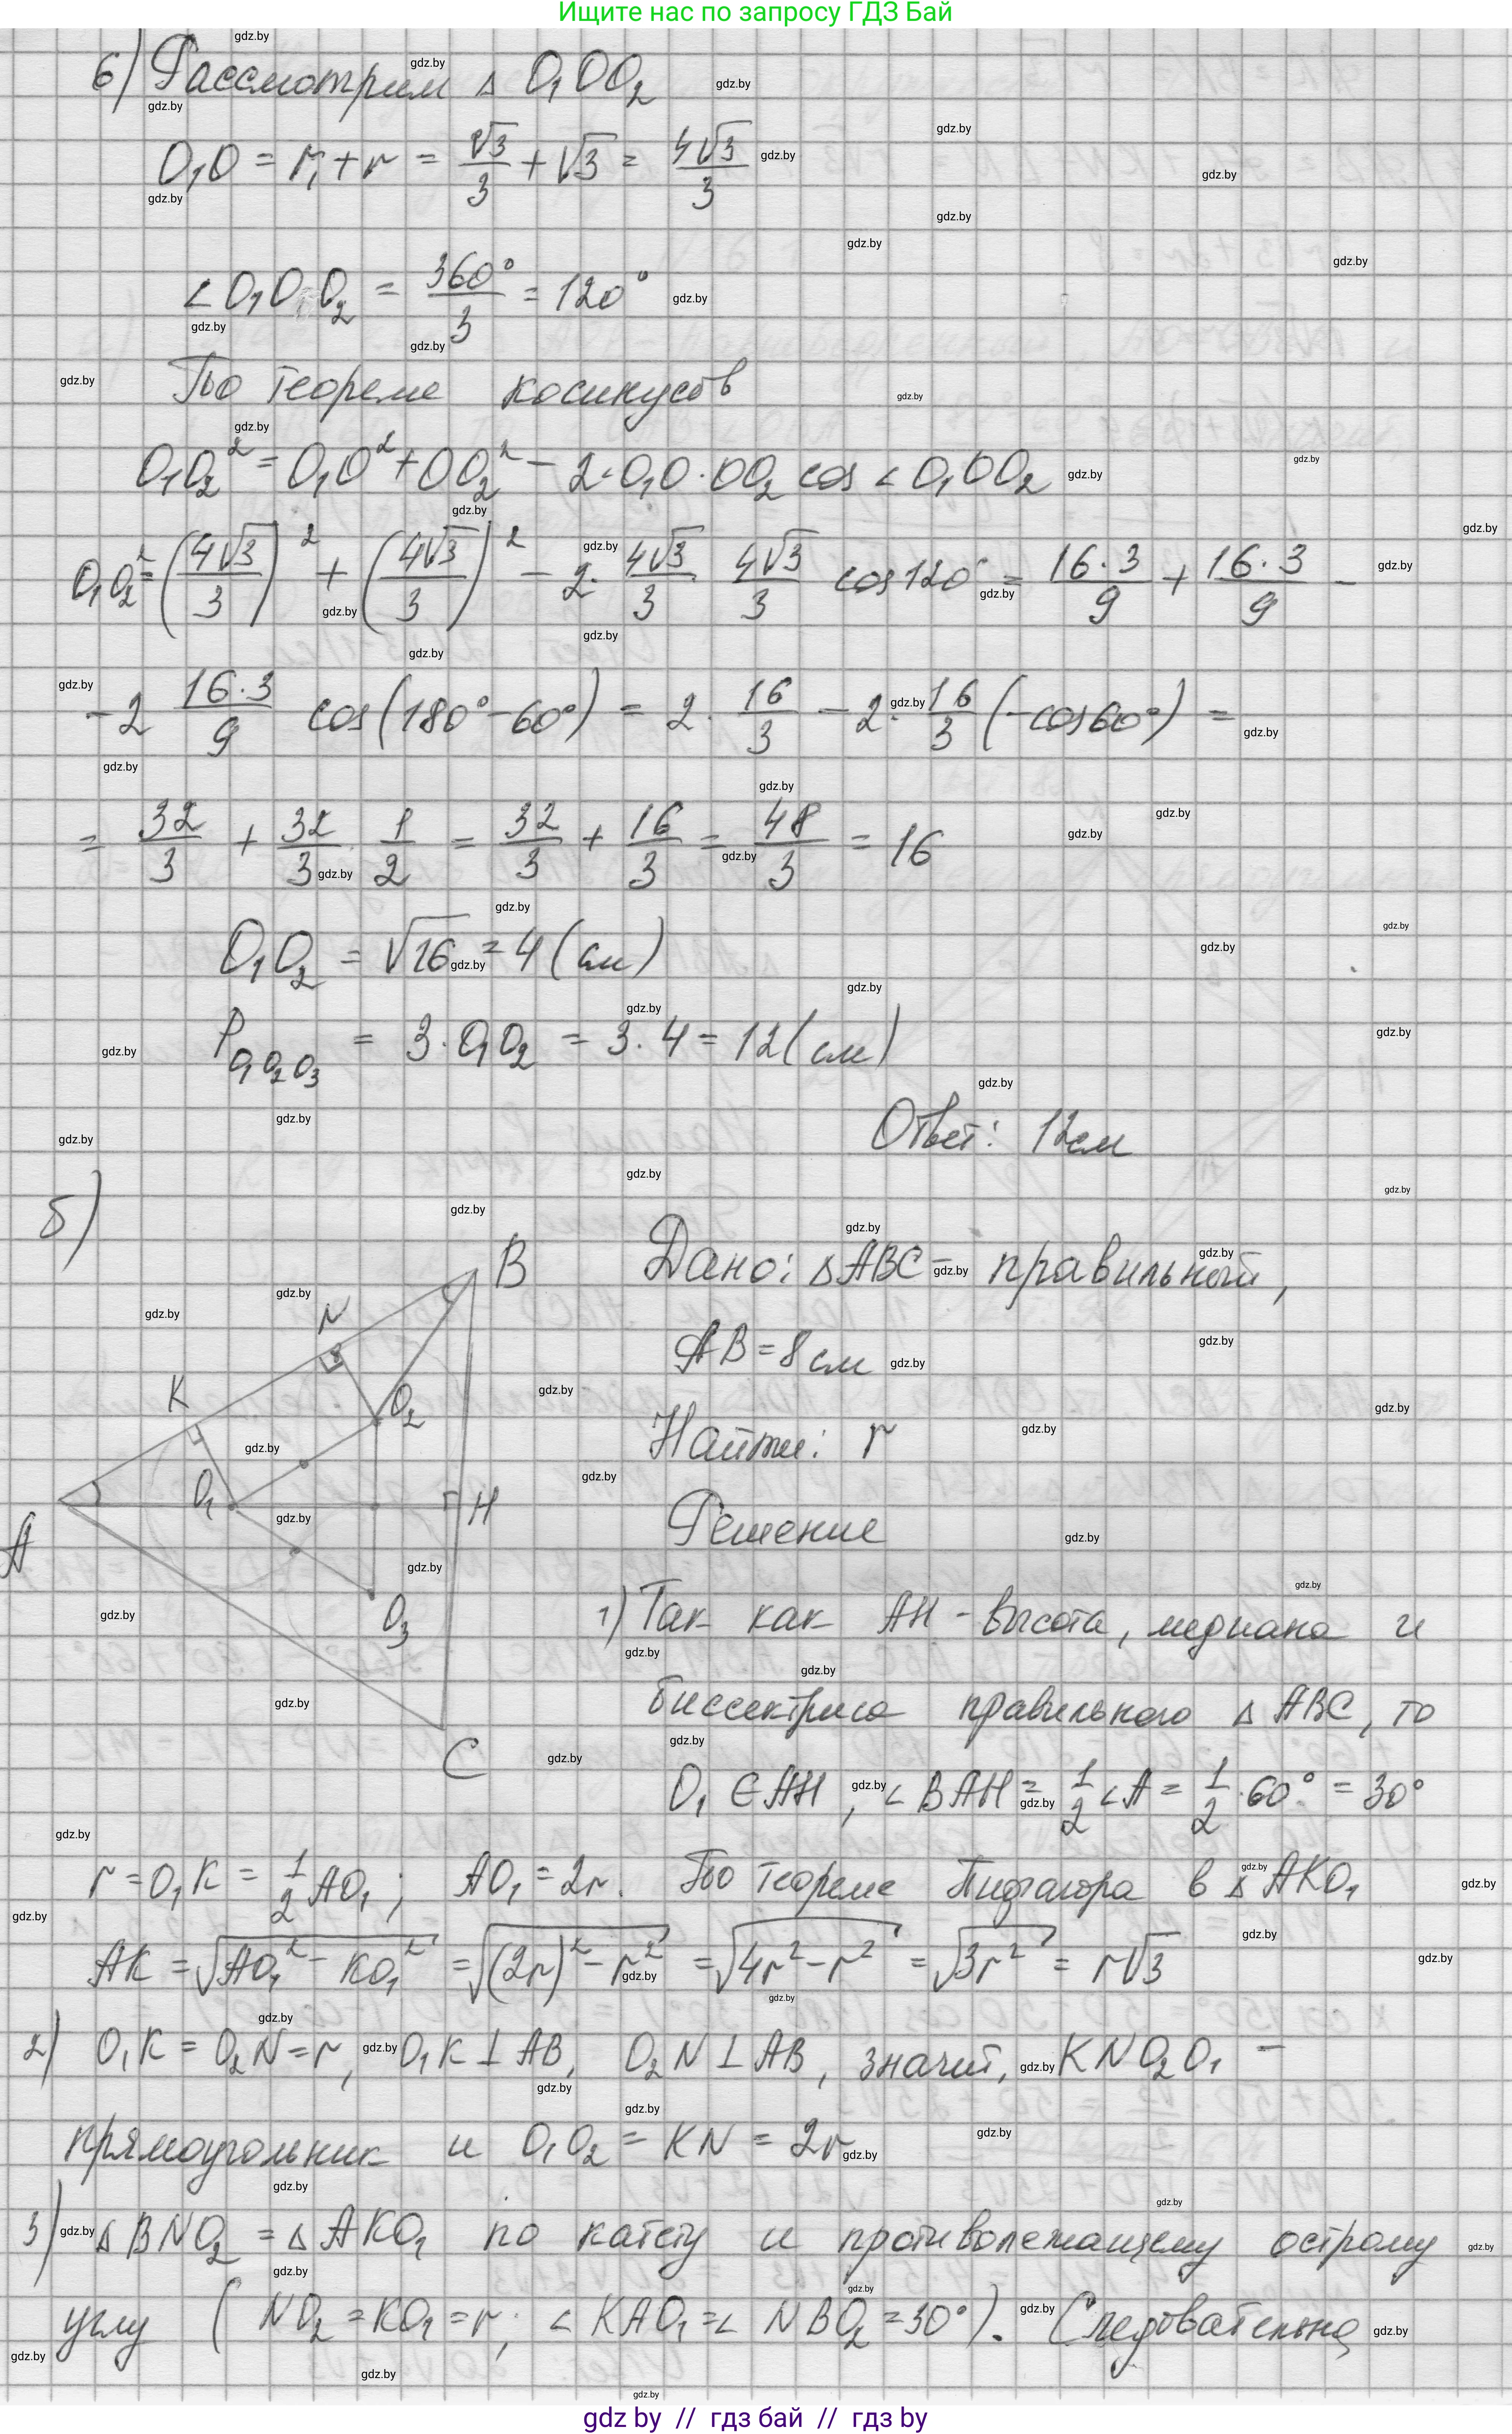 Ищите нас по запросу ГДЗ Бай
6) Рассмотрим △ O₁OO₂
O₁O = r₁ + r = √3/3 + √3 = 4√3/3
∠O₁OO₂ = 360°/3 = 120°
По теореме косинусов
O₁O₂² = O₁O² + OO₂² − 2·O₁O·OO₂ cos ∠O₁OO₂
O₁O₂² = (4√3/3)² + (4√3/3)² − 2·4√3/3·4√3/3 cos 120° = 16·3/9 + 16·3/9 −
− 2 16·3/9 cos(180°−60°) = 2·16/3 − 2·16/3 (−cos60°) =
= 32/3 + 32/3·1/2 = 32/3 + 16/3 = 48/3 = 16
O₁O₂ = √16 = 4 (см)
P O₁O₂O₃ = 3·O₁O₂ = 3·4 = 12 (см)
Ответ: 12см
б)
B
N
K
O₂
O₁
H
A
O₃
C
Дано: △ABC − правильный,
AB = 8 см
Найти: r
Решение
1) Так как AH - высота, медиана и
биссектриса правильного △ ABC, то
O₁ ∈ AH, ∠BAH = 1/2 ∠A = 1/2·60° = 30°
r = O₁K = 1/2 AO₁; AO₁ = 2r. По теореме Пифагора в △AKO₁
AK = √(AO₁² − KO₁²) = √((2r)² − r²) = √(4r² − r²) = √(3r²) = r√3
2) O₁K = O₂N = r, O₁K ⊥ AB, O₂N ⊥ AB, значит, KNO₂O₁ −
прямоугольник и O₁O₂ = KN = 2r
3) △BNO₂ = △AKO₁ по катету и противолежащему острому
углу (NO₂ = KO₁ = r; ∠KAO₁ = ∠NBO₂ = 30°). Следовательно,
gdz by // гдз бай // гдз by